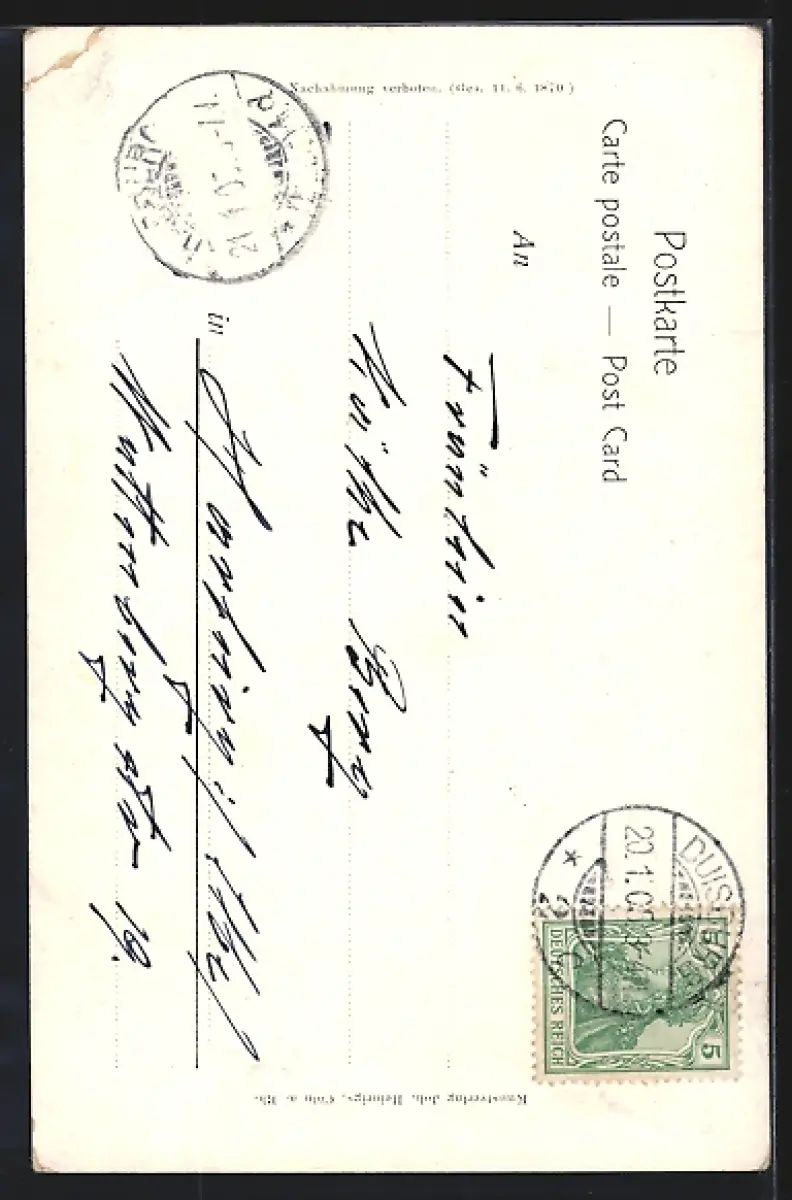 Nachahmung verboten. (Ges. 11. 6. 1870)
Postkarte
Carte postale — Post Card
An
Fräulein
Käthe Berg
in
Huttenberg str 19.
DUISBURG
20.1.0
DEUTSCHES REICH
5
21.1.0
Kunstverlag Joh. Heinrigs, Cöln a. Rh.